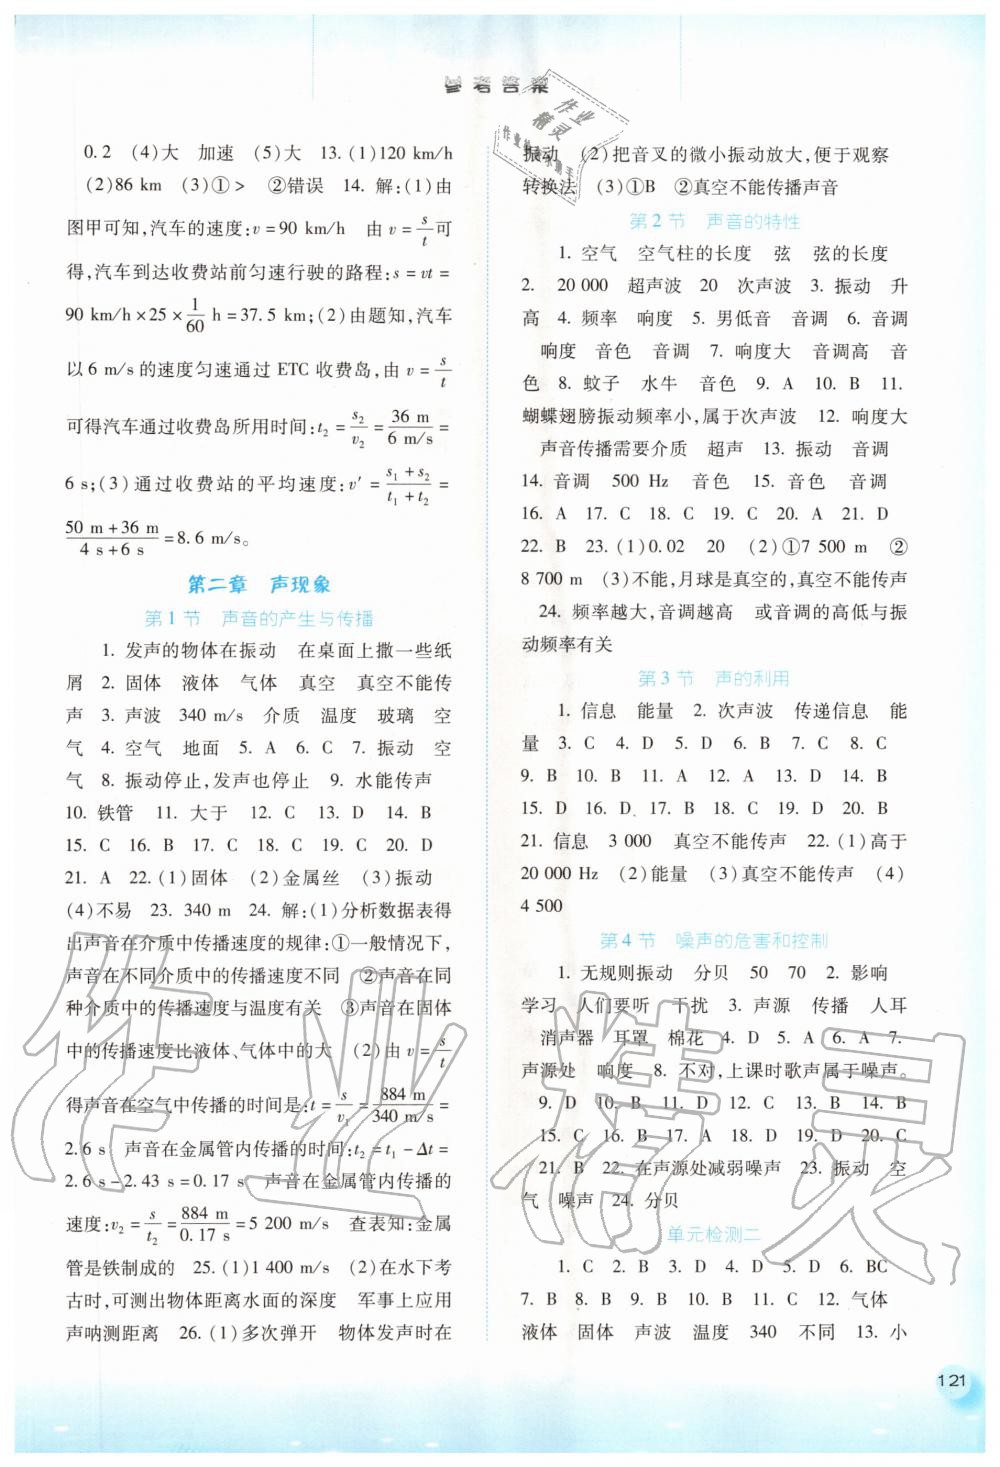 参考答案
0.2 (4)大 加速 (5)大 13. (1)120 km/h
(2)86 km (3)①> ②错误 14. 解:(1)由
图甲可知,汽车的速度:v=90 km/h 由 v=s/t可
得,汽车到达收费站前匀速行驶的路程:s=vt=
90 km/h×25×1/60 h=37.5 km;(2)由题知,汽车
以 6 m/s 的速度匀速通过 ETC 收费岛,由 v=s/t
可得汽车通过收费岛所用时间:t₂=s₂/v₂=36 m/6 m/s=
6 s;(3)通过收费站的平均速度:v′=(s₁+s₂)/(t₁+t₂)=
(50 m+36 m)/(4 s+6 s)=8.6 m/s。
第二章 声现象
第 1 节 声音的产生与传播
1. 发声的物体在振动 在桌面上撒一些纸
屑 2. 固体 液体 气体 真空 真空不能传
声 3. 声波 340 m/s 介质 温度 玻璃 空
气 4. 空气 地面 5. A 6. C 7. 振动 空
气 8. 振动停止,发声也停止 9. 水能传声
10. 铁管 11. 大于 12. C 13. D 14. B
15. C 16. B 17. D 18. C 19. C 20. D
21. A 22. (1)固体 (2)金属丝 (3)振动
(4)不易 23. 340 m 24. 解:(1)分析数据表得
出声音在介质中传播速度的规律:①一般情况下,
声音在不同介质中的传播速度不同 ②声音在同
种介质中的传播速度与温度有关 ③声音在固体
中的传播速度比液体、气体中的大 (2)由 v=s/t
得声音在空气中传播的时间是:t=s/v₁=884 m/340 m/s=
2.6 s 声音在金属管内传播的时间:t₂=t₁-Δt=
2.6 s-2.43 s=0.17 s 声音在金属管内传播的
速度:v₂=s/t₂=884 m/0.17 s=5 200 m/s 查表知:金属
管是铁制成的 25. (1)1 400 m/s (2)在水下考
古时,可测出物体距离水面的深度 军事上应用
声呐测距离 26. (1)多次弹开 物体发声时在
振动 (2)把音叉的微小振动放大,便于观察
转换法 (3)①B ②真空不能传播声音
第 2 节 声音的特性
1. 空气 空气柱的长度 弦 弦的长度
2. 20 000 超声波 20 次声波 3. 振动 升
高 4. 频率 响度 5. 男低音 音调 6. 音调
响度 音色 音调 7. 响度大 音调高 音
色 8. 蚊子 水牛 音色 9. A 10. B 11.
蝴蝶翅膀振动频率小,属于次声波 12. 响度大
声音传播需要介质 超声 13. 振动 音调
14. 音调 500 Hz 音色 15. 音色 音调
16. A 17. C 18. C 19. C 20. A 21. D
22. B 23. (1)0.02 20 (2)①7 500 m ②
8 700 m (3)不能,月球是真空的,真空不能传声
24. 频率越大,音调越高 或音调的高低与振
动频率有关
第 3 节 声的利用
1. 信息 能量 2. 次声波 传递信息 能
量 3. C 4. D 5. D 6. B 7. C 8. C
9. B 10. B 11. A 12. A 13. D 14. B
15. D 16. D. 17. B 18. C 19. D 20. B
21. 信息 3 000 真空不能传声 22. (1)高于
20 000 Hz (2)能量 (3)真空不能传声 (4)
4 500
第 4 节 噪声的危害和控制
1. 无规则振动 分贝 50 70 2. 影响
学习 人们要听 干扰 3. 声源 传播 人耳
消声器 耳罩 棉花 4. D 5. A 6. A 7.
声源处 响度 8. 不对,上课时歌声属于噪声。
9. D 10. B 11. D 12. C 13. B 14. B
15. C 16. B 17. A 18. D 19. D 20. C
21. B 22. 在声源处减弱噪声 23. 振动 空
气 噪声 24. 分贝
单元检测二
1. C 2. B 3. D 4. D 5. D 6. BC
7. B 8. B 9. B 10. B 11. C 12. 气体
液体 固体 声波 温度 340 不同 13. 小
121
作业精灵